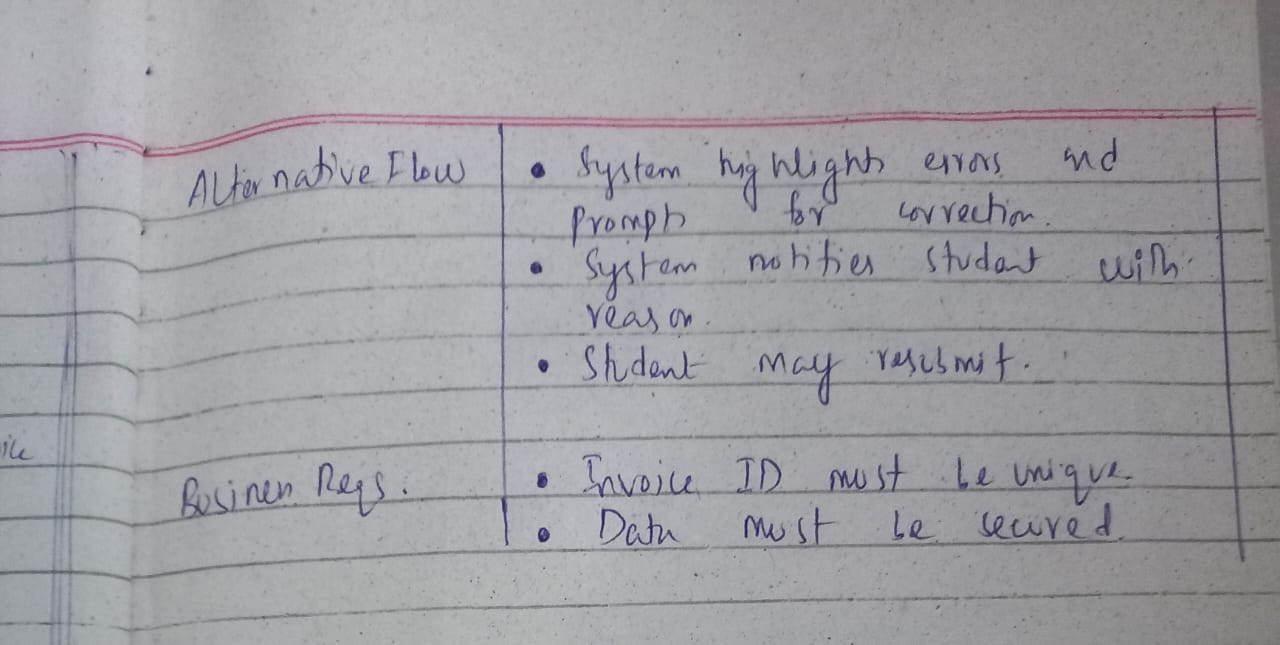 Alternative Flow
• System highlights errors and
prompts for correction.
• System notifies student with
reason.
• Student may resubmit.
Business Reqs.
• Invoice ID must be unique.
• Data must be secured.